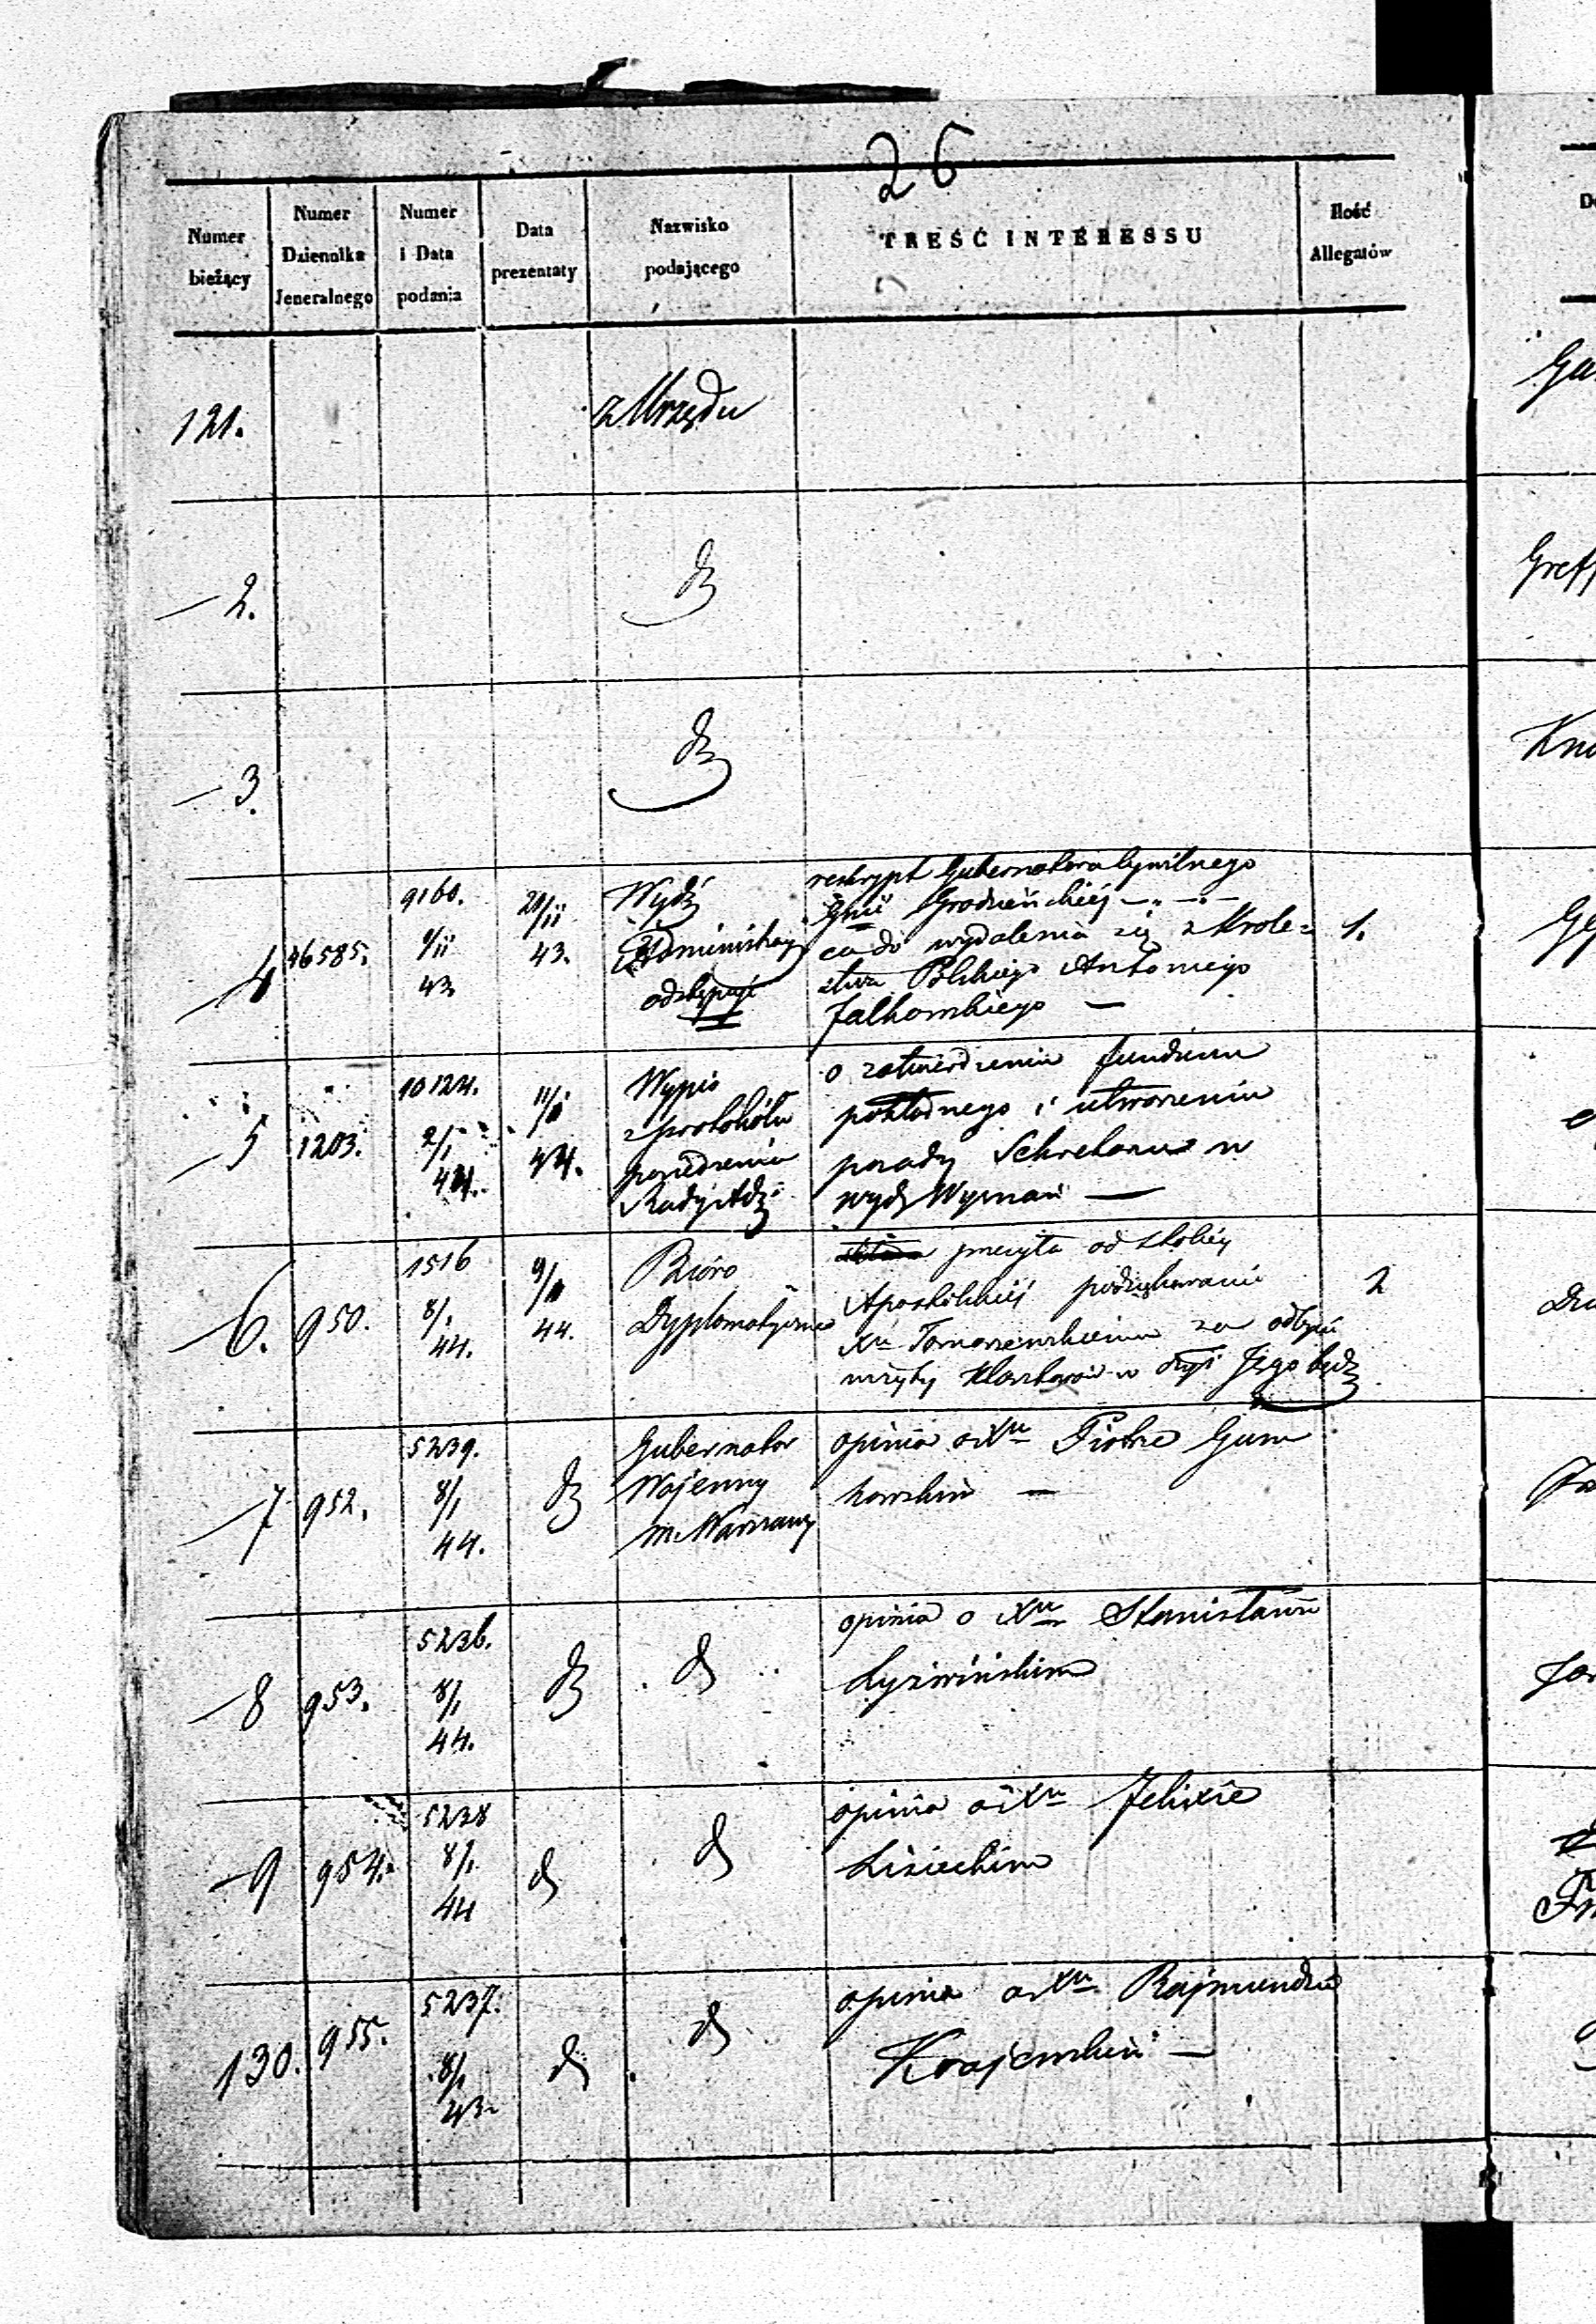 26
Numer bieżący
Numer Dziennika Jeneralnego
Numer i Data podania
Data prezentaty
Nazwisko podającego
TREŚĆ INTERESSU
Ilość Allegatów
121.
z Urzędu
Ga
2.
dº
Greff
3.
dº
Kna
4
16585.
9160.
9/11
43
21/11
43.
Wydź
Administracyj
odstępuje
reskrypt Gubernatora Cywilnego
Gnii Grodzieńskiéj
co do wydalenia się z Króle=
stwa Polskiego Antoniego
Jałkowskiego —
1.
5
1203.
10124.
2/1
44.
11/1
44.
Wypis
z protokółu
posiedzenia
Rady Adź
o zatwierdzeniu funduszu
i utworzeniu
posady Sekretarza w
wydź Wyznań —
6.
950.
1516
8/1
44.
9/1
44.
Bióro
Dyplomatyczne
przesyła od stolicy
Apostolskiéj podziękowanie
Xu Tomaszewskiemu za odbycie
wizyty Klasztorów w
2
7
952.
5239.
8/1
44.
dº
Gubernator
Wojenny
m. Warszawy
opinia o Xu Piotrze Gum
kowskim —
8
953.
5236.
8/1
44.
dº
dº
opinia o Xu Stanisławie
Łyziwińskim
9
954.
5238
8/1
44
dº
dº
opinia o Xu Felixie
Lisieckim
130.
955.
5237.
8/1
43
dº
dº
opinia o Xu Rajmundzie
Krajewskim —